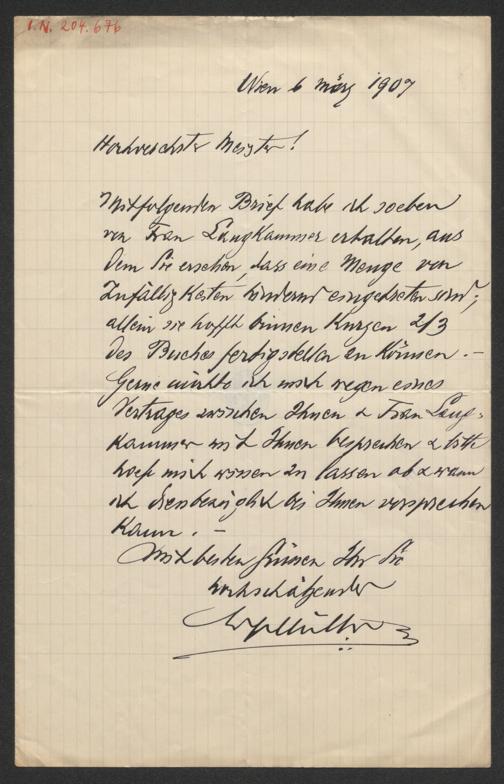 I.N. 204.676
Wien 6 März 1907
Hochverehrter Meister!
Mitfolgenden Brief habe ich soeben
von Frau Langkammer erhalten, aus
dem Sie ersehen, dass eine Menge von
Zufälligkeiten hindernd eingetreten sind;
allein sie hofft binnen Kurzen 2/3
des Buches fertigstellen zu können. –
Gerne möchte ich mich wegen eines
Vertrages zwischen Ihnen & Frau Lang-
kammer mit Ihnen besprechen & bitte
mich wissen zu lassen ob & wann
ich diesbezüglich bei Ihnen vorsprechen
kann. –
Mit besten Grüssen Ihr Sie
hochschätzender
Müller